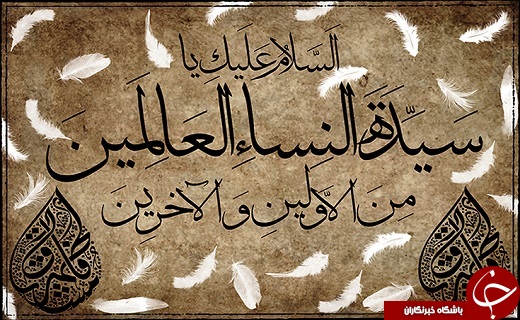 السَّلامُ عَلَيكِ يا
سَيِّدَةَ النِساءِ العالَمين
مِنَ الاَوَّلينِ وَ الآخَرينَ
باشگاه خبرنگاران